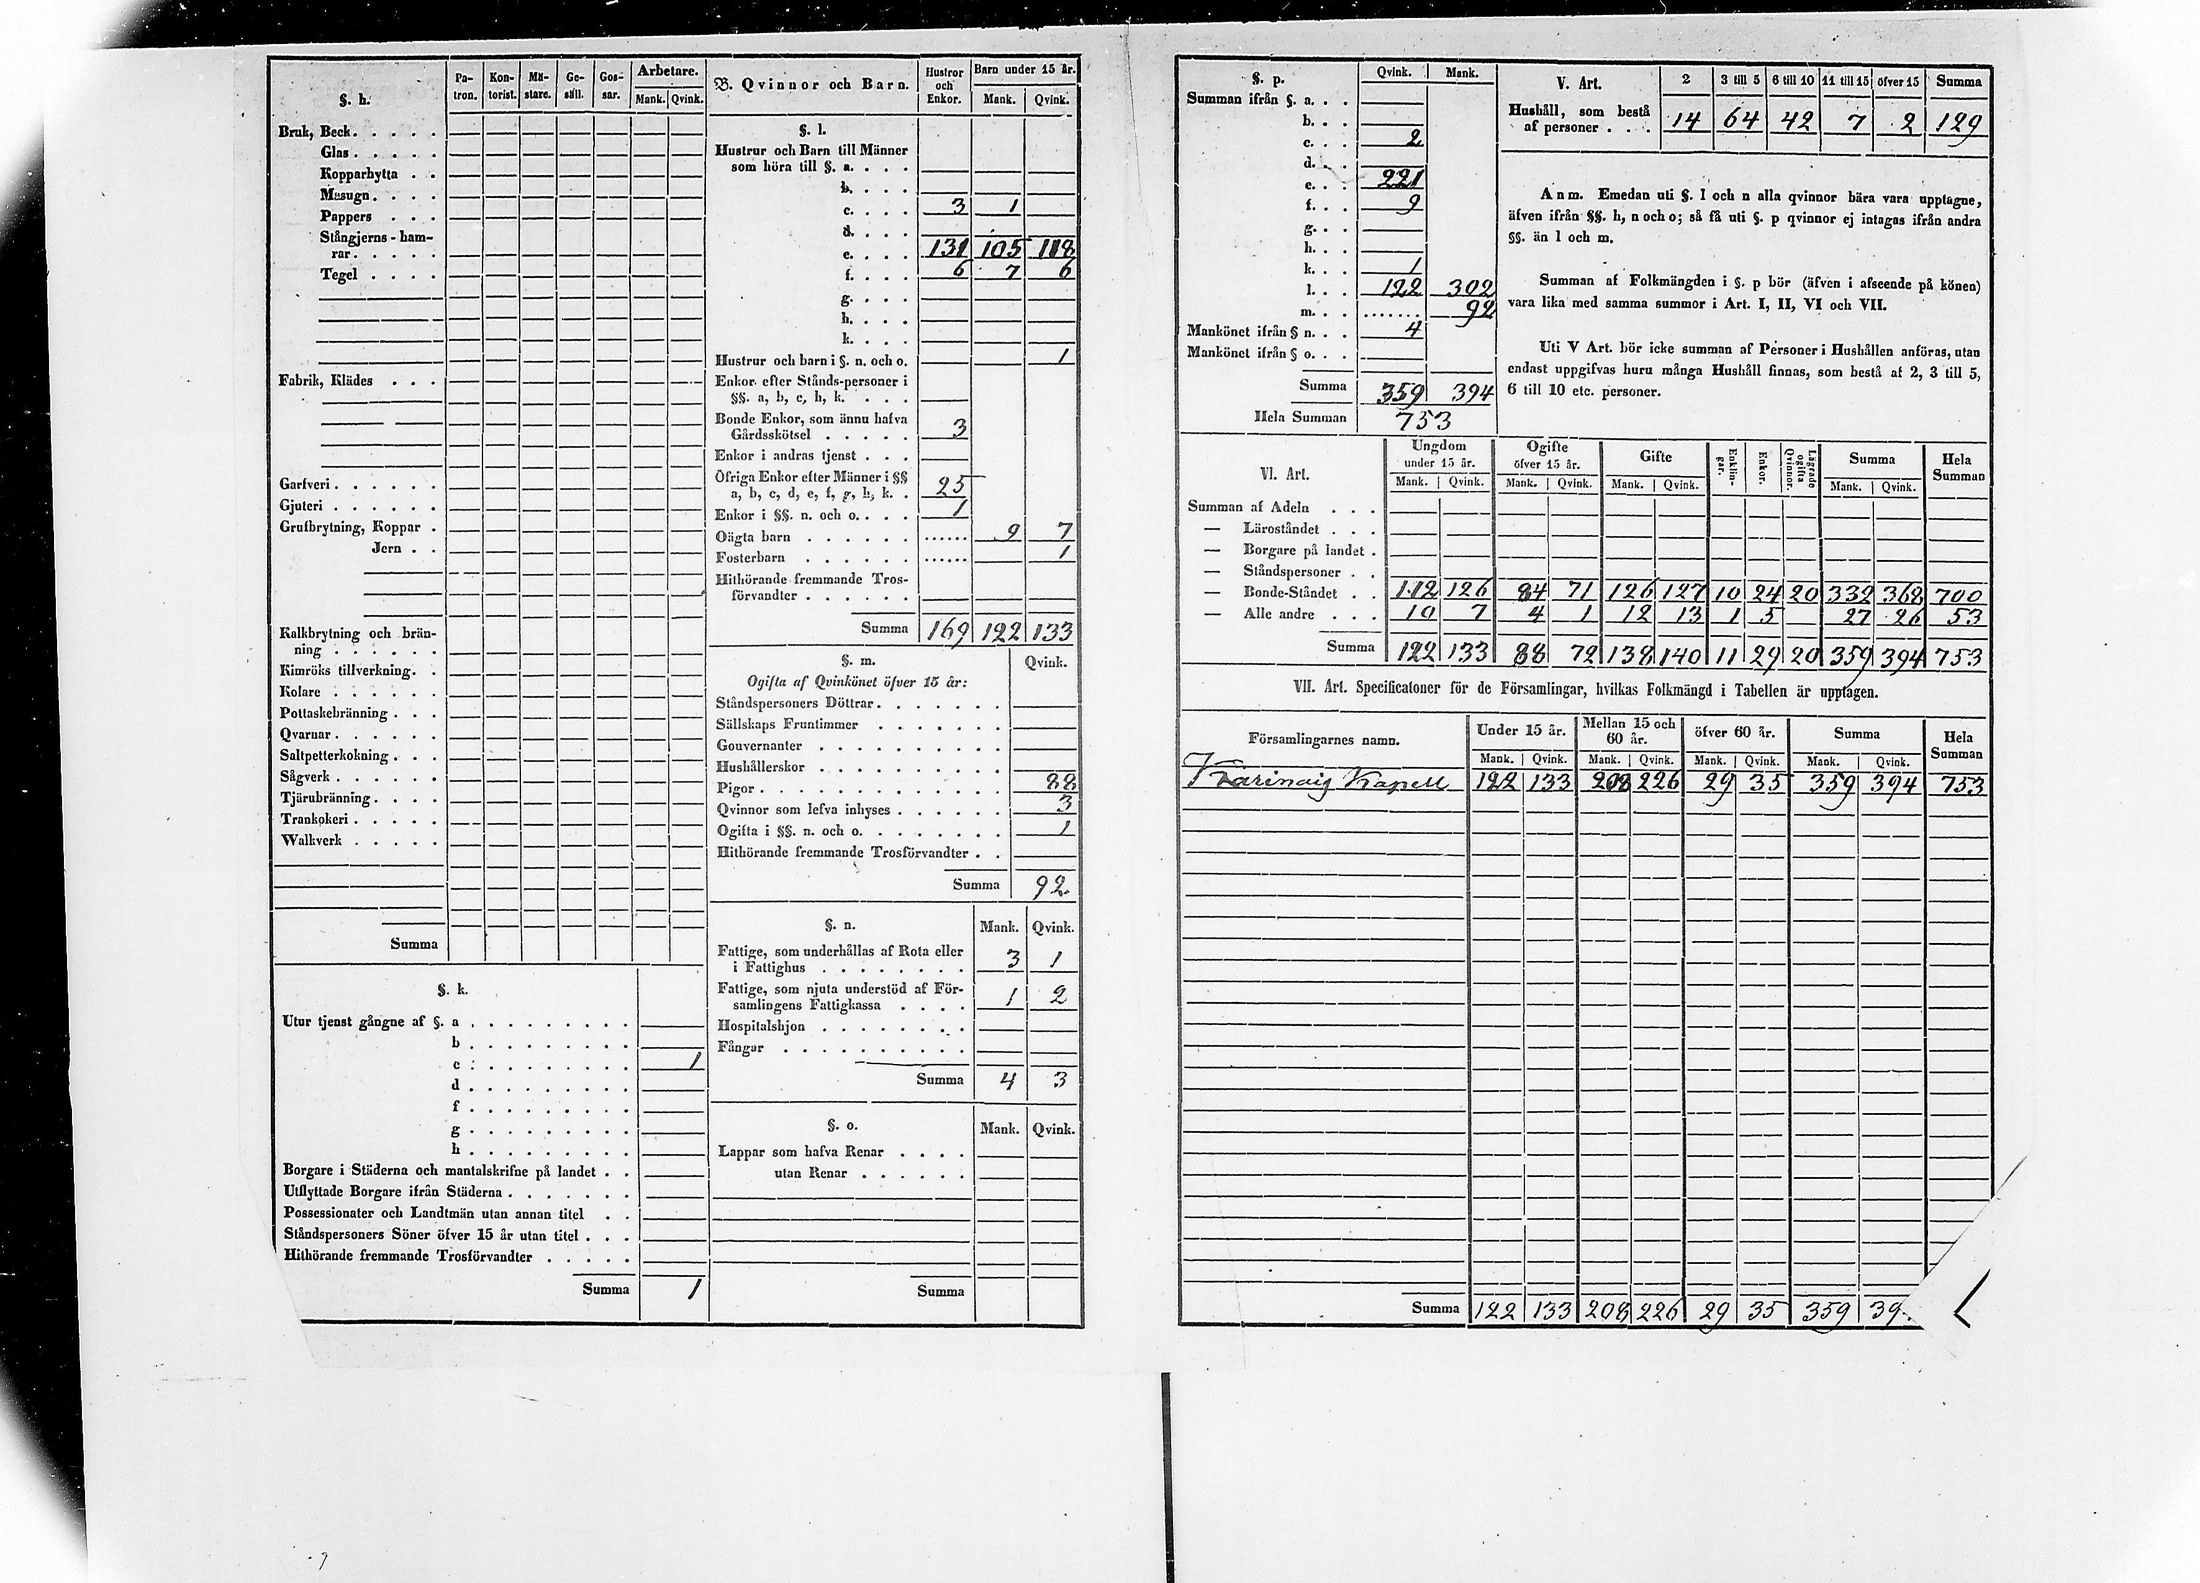 §. h. Pa- tron. Kon- torist. Mä- stare. Ge- säll. Gos- sar. Arbetare. Mank. Qvink.
Bruk, Beck. . . . .
Glas. . . . .
Kopparhytta . .
Masugn. . . .
Pappers . . .
Stångjerns-ham-
rar. . . . .
Tegel . . . .
Fabrik, Klädes . . .
Garfveri. . . . . .
Gjuteri . . . . . .
Grufbrytning, Koppar .
Jern . .
Kalkbrytning och brän-
ning . . . . . .
Kimröks tillverkning. .
Kolare . . . . . .
Pottaskebränning . . .
Qvarnar . . . . . .
Saltpetterkokning. . .
Sågverk . . . . . .
Tjärubränning. . . .
Trankokeri . . . . .
Walkverk . . . . .
Summa
§. k.
Utur tjenst gångne af §. a . . . . . . . . .
b . . . . . . . . .
c . . . . . . . . . 1
d . . . . . . . . .
f . . . . . . . . .
g . . . . . . . . .
h . . . . . . . . .
Borgare i Städerna och mantalskrifne på landet . .
Utflyttade Borgare ifrån Städerna . . . . . . .
Possessionater och Landtmän utan annan titel . .
Ståndspersoners Söner öfver 15 år utan titel . . .
Hithörande fremmande Trosförvandter . . . . .
Summa 1
B. Qvinnor och Barn. Hustror och Enkor. Barn under 15 år. Mank. Qvink.
§. l.
Hustrur och Barn till Männer
som höra till §. a. . . .
b. . . .
c. . . . 3 1
d. . . .
e. . . . 131 105 118
f. . . . 6 7 6
g. . . .
h. . . .
k. . . .
Hustrur och barn i §. n. och o. 1
Enkor efter Stånds-personer i
§§. a, b, c, h, k. . . .
Bonde Enkor, som ännu hafva
Gårdsskötsel . . . . . 3
Enkor i andras tjenst . . .
Öfriga Enkor efter Männer i §§
a, b, c, d, e, f, g, h, k. . 25
Enkor i §§. n. och o. . . . 1
Oägta barn . . . . . . ...... 9 7
Fosterbarn . . . . . . ...... 1
Hithörande fremmande Tros-
förvandter . . . . . .
Summa 169 122 133
§. m. Qvink.
Ogifta af Qvinkönet öfver 15 år:
Ståndspersoners Döttrar. . . . . . .
Sällskaps Fruntimmer . . . . . . .
Gouvernanter . . . . . . . . . .
Hushållerskor . . . . . . . . . .
Pigor . . . . . . . . . . . . . 88
Qvinnor som lefva inhyses . . . . . . 3
Ogifta i §§. n. och o. . . . . . . . 1
Hithörande fremmande Trosförvandter . .
Summa 92.
§. n. Mank. Qvink.
Fattige, som underhållas af Rota eller
i Fattighus . . . . . . . . 3 1
Fattige, som njuta understöd af För-
samlingens Fattigkassa . . . . 1 2
Hospitalshjon . . . . . . . .
Fångar . . . . . . . . . .
Summa 4 3
§. o. Mank. Qvink.
Lappar som hafva Renar . . . .
utan Renar . . . . . .
Summa
§. p. Qvink. Mank.
Summan ifrån §. a. . .
b. . .
c. . . 2
d. . .
e. . . 221
f. . . 9
g. . .
h. . .
k. . . 1
l. . . 122 302
m. . . ....... 92
Mankönet ifrån § n. . . 4
Mankönet ifrån § o. . .
Summa 359 394
Hela Summan 753
V. Art. 2 3 till 5 6 till 10 11 till 15 öfver 15 Summa
Hushåll, som bestå
af personer . . . . 14 64 42 7 2 129
Anm. Emedan uti §. l och n alla qvinnor bära vara upptagne,
äfven ifrån §§. h, n och o; så få uti §. p qvinnor ej intagas ifrån andra
§§. än l och m.
Summan af Folkmängden i §. p bör (äfven i afseende på könen)
vara lika med samma summor i Art. I, II, VI och VII.
Uti V Art. bör icke summan af Personer i Hushållen anföras, utan
endast uppgifvas huru många Hushåll finnas, som bestå af 2, 3 till 5,
6 till 10 etc. personer.
VI. Art. Ungdom under 15 år. Mank. Qvink. Ogifte öfver 15 år. Mank. Qvink. Gifte Mank. Qvink. Enklin- gar. Enkor. Lägrade ogifta Qvinnor. Summa Mank. Qvink. Hela Summan
Summan af Adeln . . .
— Läroståndet . . .
— Borgare på landet .
— Ståndspersoner . .
— Bonde-Ståndet . . 112 126 84 71 126 127 10 24 20 332 368 700
— Alle andre . . . 10 7 4 1 12 13 1 5 27 26 53
Summa 122 133 88 72 138 140 11 29 20 359 394 753
VII. Art. Specificatoner för de Församlingar, hvilkas Folkmängd i Tabellen är upptagen.
Församlingarnes namn. Under 15 år. Mank. Qvink. Mellan 15 och 60 år. Mank. Qvink. öfver 60 år. Mank. Qvink. Summa Mank. Qvink. Hela Summan
Karinais Kapell 122 133 208 226 29 35 359 394 753
Summa 122 133 208 226 29 35 359 39